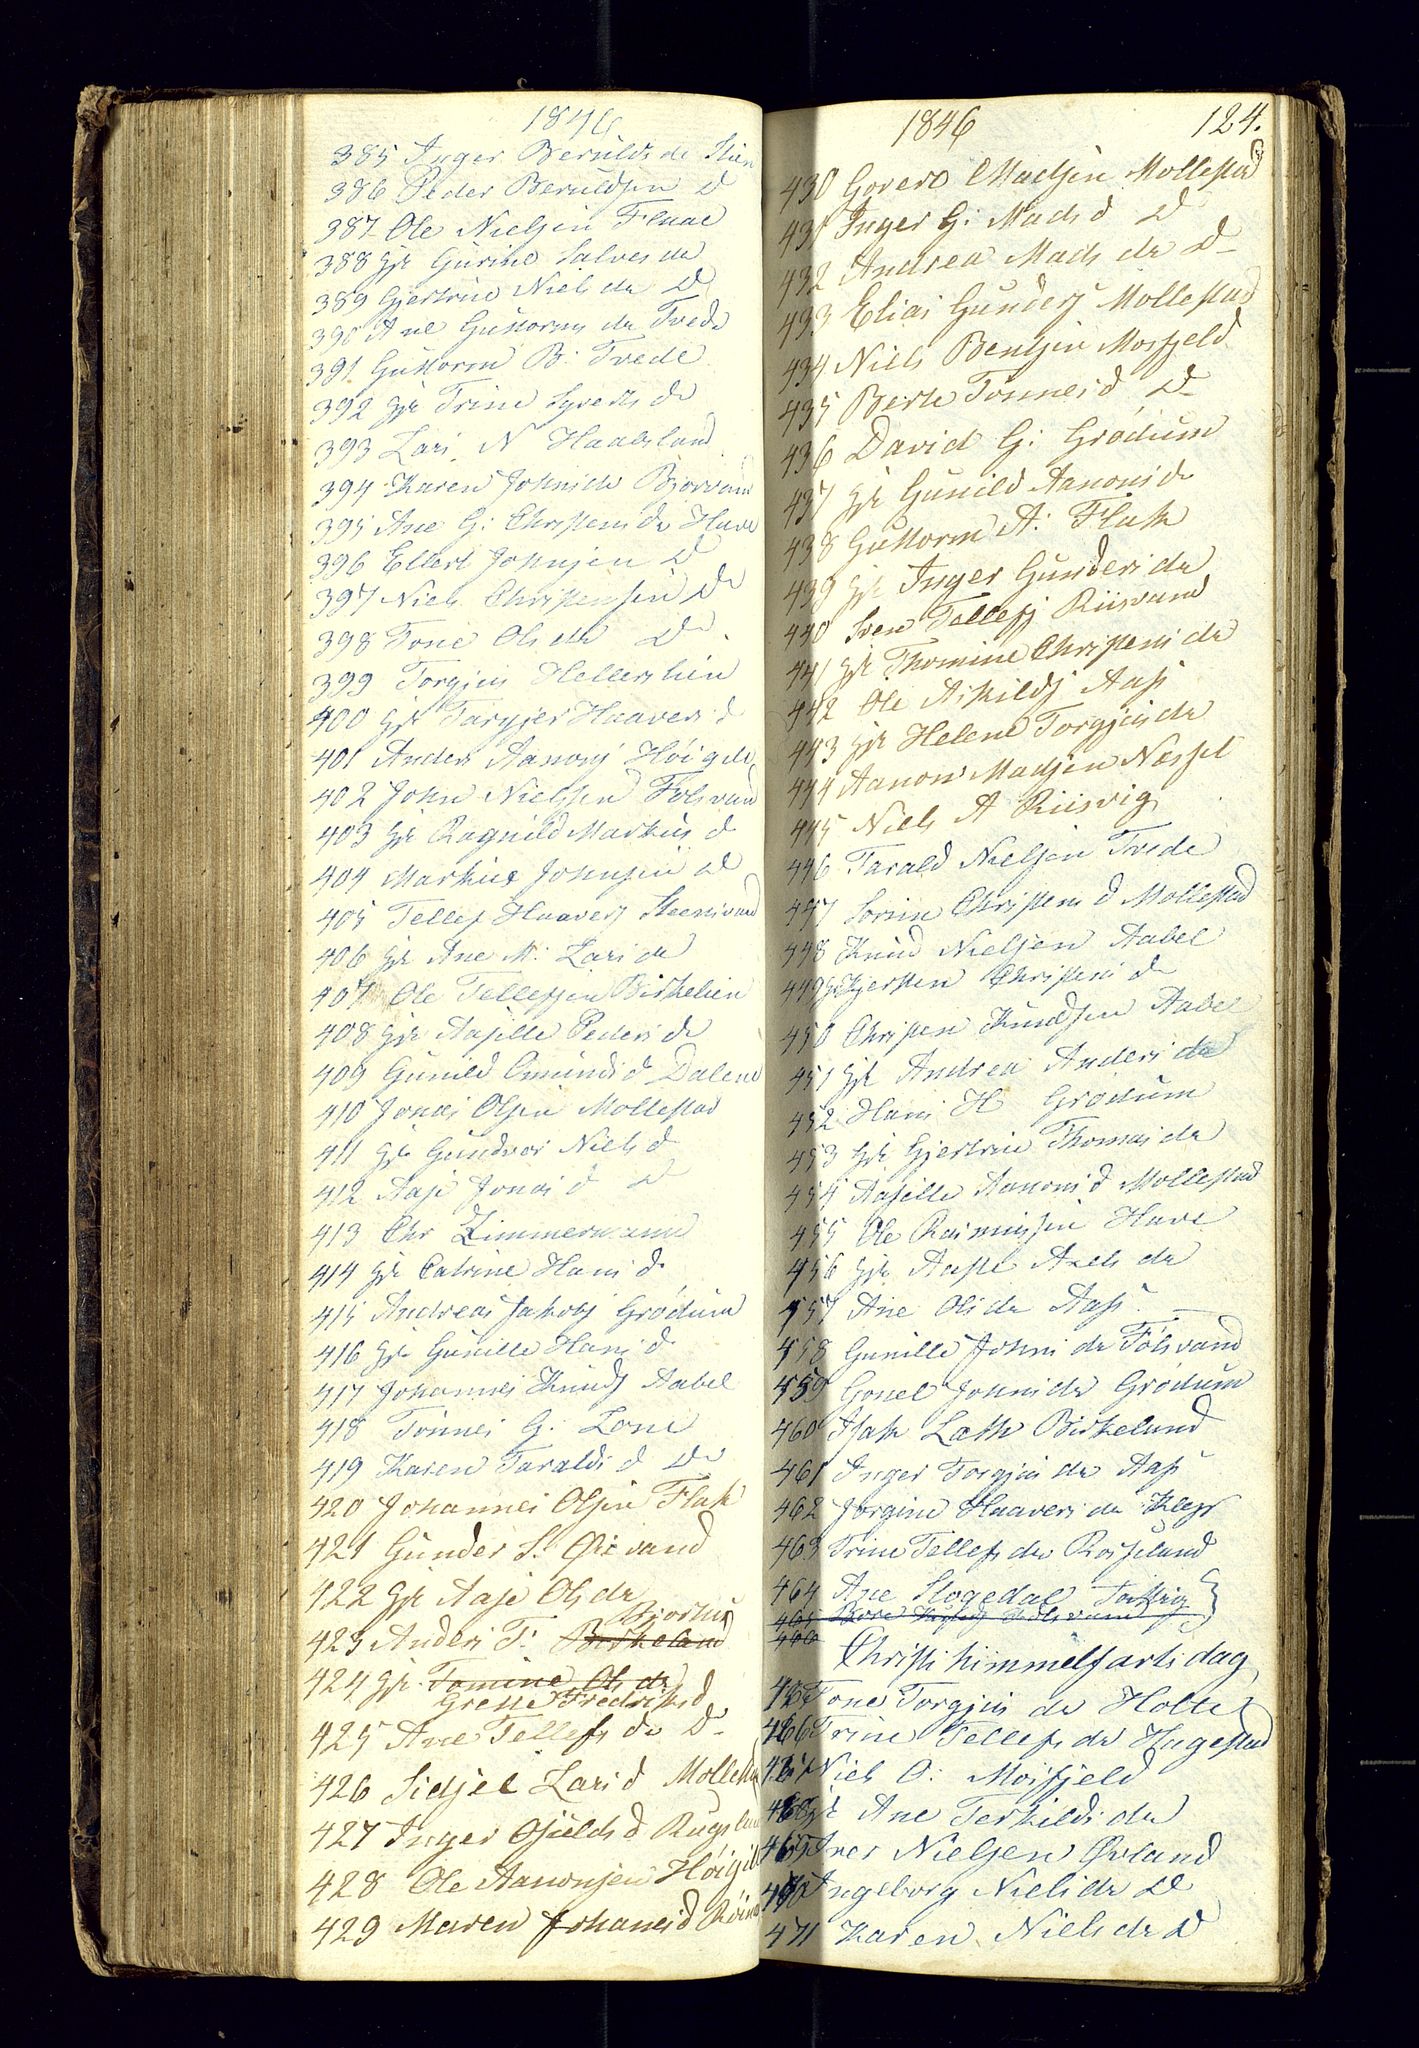 1846
385 Inger Berulds de Stien
386 Peder Beruldsen D
387 Ole Nielsen Flaae
388 Gk Gurine Salves da
389 Gjertrine Niels da D
390 Ane Guttorms da Tvede
391 Guttorm B: Tvede
392 Gk Trine Syverts d
393 Lars N Haabesland
394 Karen Johnsde Bjorvand
395 Ane G: Christens da Have
396 Ellert Johnsen D
397 Niels Christensen Do
398 Tone Ols da Do
399 Torgjus Hellerslien
400 Gk Targjer Haavers d
401 Anders Aanonsj Høigilt
402 John Nielsen Følsvand
403 Gk Ragnild Markus d
404 Markus Johnsen D
405 Tellef Haaversj Steensvand
406 Gk Ane M: Lars da
407 Ole Tellefsen Birkelien
408 Gk Aasille Peders d
409 Gunild Omunds d Dalene
410 Jonas Olsen Mollestad
411 Gk Gundvor Niels d
412 Aase Jonas d D
413 Chr Zimmermann
414 Gk Catrine Hans d
415 Andreas Jakobsj Grødum
416 Gk Gunille Hans d
417 Johannes Knudsj Aabel
418 Tønnes G: Lone
419 Karen Taralds d Do
420 Johannes Olsen Flak
421 Gunder S. Øievand
422 Gk Aase Ols da
Bjorhus
423 Anders T: Birkeland
424 Gk Tomine Ols da
Grethe Fredriks d
425 Ane Tellefs da D
426 Sidsel Lars d Mollestad
427 Inger Ojulds d Rugsland
428 Ole Aanonsen Høigilt
429 Maren Johannes d
1846 124.
430 Govert Madsen Mollestad
431 Inger G: Mads d D
432 Andrea Mads da D
433 Elias Gundersj Mollestad
434 Niels Bentsen Mosfjeld
435 Berte Tønnes d D
436 David G: Grødum
437 Gk Gunild Aanons d
438 Guttorm A: Flak
439 Gk Inger Gunders da
440 Sven Tellefsj Riisvand
441 Gk Thomine Christens da
442 Ole Askildsj Aas
443 Gk Helene Torgjus da
444 Aanon Madsen Næsset
445 Niels A Riisvig
446 Tarald Nielsen Tvede
447 Sørine Christens d Mollestad
448 Knud Nielsen Aabel
449 Gk Kjersten Christens d
450 Christen Knudsen Aabel
451 Gk Andrea Anders da
452 Hans H Grødum
453 Gk Gjertrine Thomas da
454 Aasille Aanons d Mollestad
455 Ole Rasmussen Have
456 Gk Aaste Axels da
457 Ane Ols da Aas
458 Gunille Johns da Følsvand
459 Gonel Johns da Grødum
460 Isak Læth Birkeland
461 Inger Torgjus da Aas
462 Jørgine Haavers da Klep
463 Trine Tellefs da Rosseland
464 Ane Stogedal
465
466
Christi himmelfarts dag
465 Tone Torgjus da Holte
466 Trine Tellefs da Hagestad
467 Niels O: Mosfjeld
468 Gk Ane Terkilds da
469 Iver Nielsen Øvland
470 Ingeborg Niels da D
471 Karen Niels da D